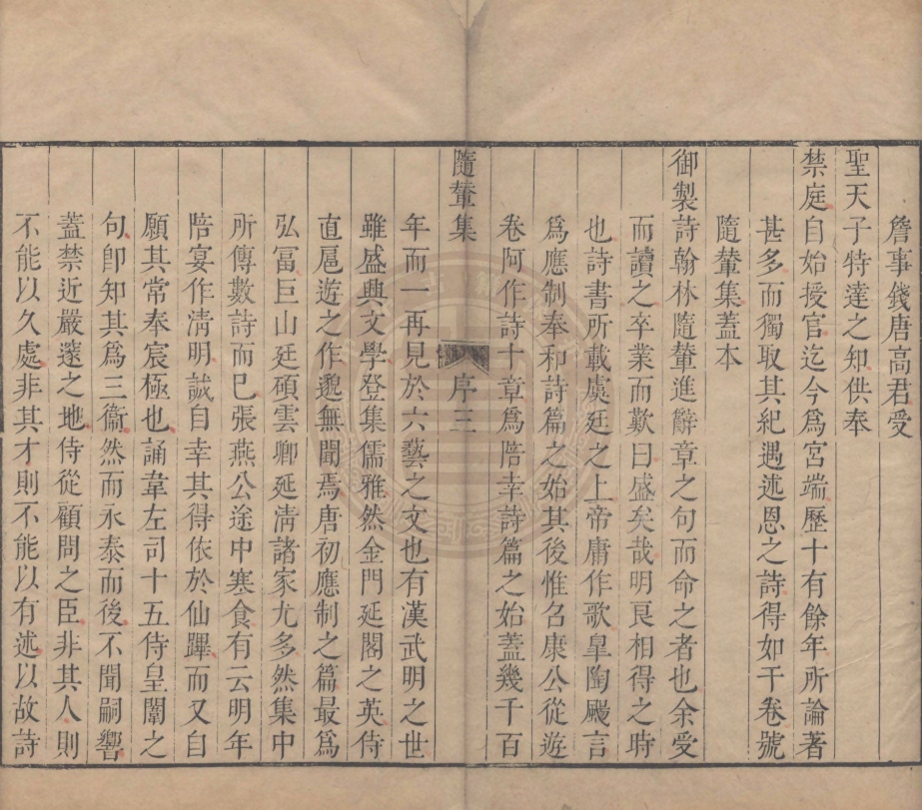 詹事錢唐高君受
聖天子特達之知供奉
禁庭自始授官迄今爲宮端歷十有餘年所論著
甚多而獨取其紀遇述恩之詩得如干卷號
隨輦集蓋本
御製詩翰林隨輦進辭章之句而命之者也余受
而讀之卒業而歎曰盛矣哉明良相得之時
也詩書所載虞廷之上帝庸作歌臯陶颺言
爲應制奉和詩篇之始其後惟召康公從遊
卷阿作詩十章爲陪幸詩篇之始蓋幾千百
隨輦集
序
三
年而一再見於六藝之文也有漢武明之世
雖盛典文學登集儒雅然金門延閣之英侍
直扈遊之作邈無聞焉唐初應制之篇最爲
弘富巨山廷碩雲卿延淸諸家尤多然集中
所傳數詩而已張燕公途中寒食有云明年
陪宴作淸明誠自幸其得依於仙蹕而又自
願其常奉宸極也誦韋左司十五侍皇闈之
句卽知其爲三衞然而永泰而後不聞嗣響
蓋禁近嚴邃之地侍從顧問之臣非其人則
不能以久處非其才則不能以有述以故詩